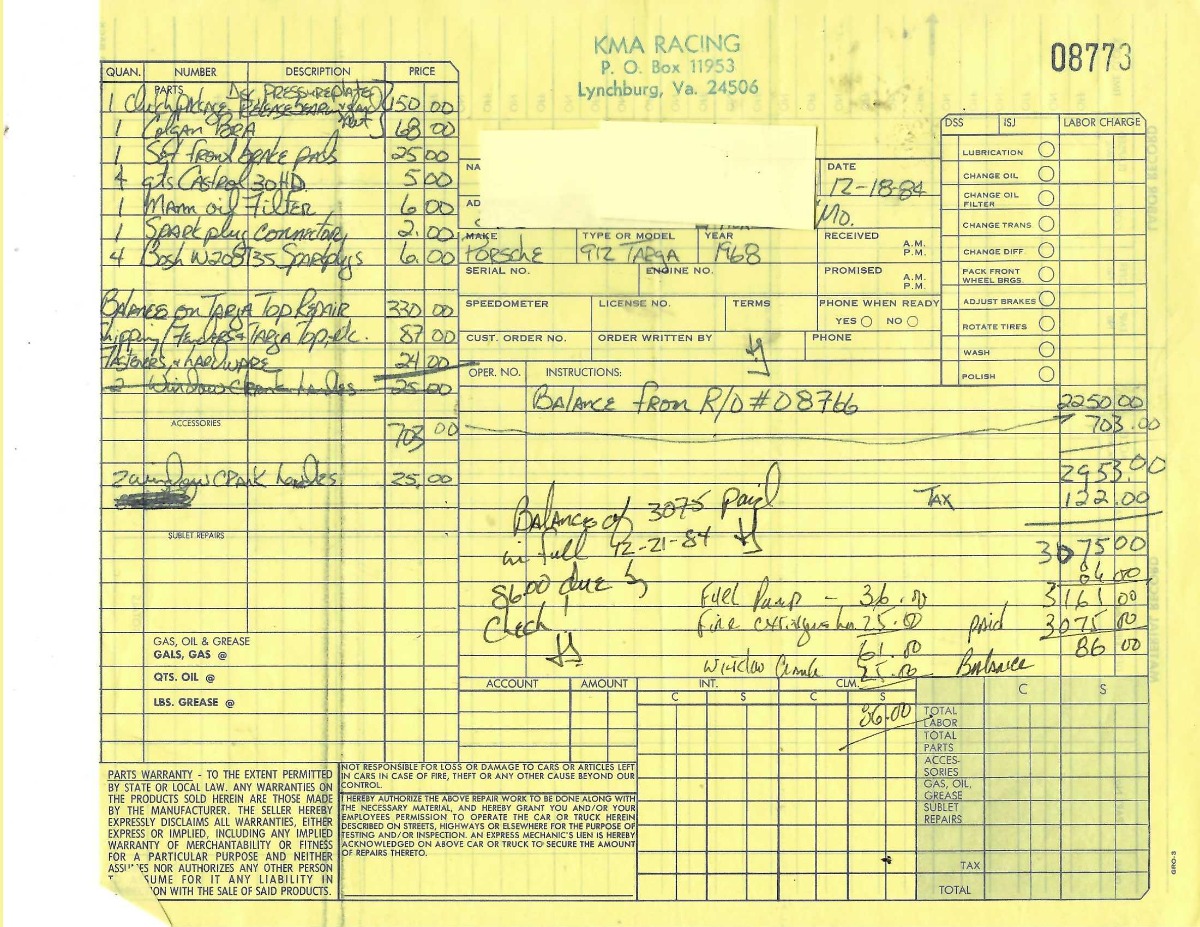 KMA RACING
P. O. Box 11953
Lynchburg, Va. 24506
08773
QUAN. NUMBER DESCRIPTION PRICE
PARTS
1 Clutch Package 150 00
1 Colgan BRA 68 00
1 Set front brake pads 25 00
4 qts Castrol 30 HD. 5 00
1 Mann oil Filter 6 00
1 Spark plug connector 2.00
4 Bosh W208T35 Sparkplugs 6.00
Balance on Targa Top Repair 330 00
Shipping/Fenders & Targa Top, etc. 87 00
Fasteners & hardware 24 00
2 window crank handles 25.00
ACCESSORIES
703 00
2 window crank handles 25.00
SUBLET REPAIRS
GAS, OIL & GREASE
GALS, GAS @
QTS. OIL @
LBS. GREASE @
NA
AD
DATE
12-18-84
Mo.
MAKE TYPE OR MODEL YEAR RECEIVED A.M. P.M.
PORSCHE 912 TARGA 1968
SERIAL NO. ENGINE NO. PROMISED A.M. P.M.
SPEEDOMETER LICENSE NO. TERMS PHONE WHEN READY
YES NO
CUST. ORDER NO. ORDER WRITTEN BY PHONE
DSS ISJ LABOR CHARGE
LUBRICATION
CHANGE OIL
CHANGE OIL FILTER
CHANGE TRANS
CHANGE DIFF.
PACK FRONT WHEEL BRGS.
ADJUST BRAKES
ROTATE TIRES
WASH
POLISH
OPER. NO. INSTRUCTIONS:
Balance from R/O # 08766 2250 00
703.00
2953.00
TAX 122.00
Balance of 3075 paid
in full 12-21-84
86.00 due by
Check!
3075 00
86 00
Fuel Pump - 36.00 3161 00
Fire extinguisher 25.00 paid 3075 00
61.00 86 00
Window Crank 25.00 Balance
86.00
ACCOUNT AMOUNT INT. CLM.
C S C S C S
TOTAL LABOR
TOTAL PARTS
ACCES-
SORIES
GAS, OIL,
GREASE
SUBLET
REPAIRS
TAX
TOTAL
PARTS WARRANTY - TO THE EXTENT PERMITTED
BY STATE OR LOCAL LAW. ANY WARRANTIES ON
THE PRODUCTS SOLD HEREIN ARE THOSE MADE
BY THE MANUFACTURER. THE SELLER HEREBY
EXPRESSLY DISCLAIMS ALL WARRANTIES, EITHER
EXPRESS OR IMPLIED, INCLUDING ANY IMPLIED
WARRANTY OF MERCHANTABILITY OR FITNESS
FOR A PARTICULAR PURPOSE AND NEITHER
ASSUMES NOR AUTHORIZES ANY OTHER PERSON
SUME FOR IT ANY LIABILITY IN
ON WITH THE SALE OF SAID PRODUCTS.
NOT RESPONSIBLE FOR LOSS OR DAMAGE TO CARS OR ARTICLES LEFT
IN CARS IN CASE OF FIRE, THEFT OR ANY OTHER CAUSE BEYOND OUR
CONTROL.
I HEREBY AUTHORIZE THE ABOVE REPAIR WORK TO BE DONE ALONG WITH
THE NECESSARY MATERIAL, AND HEREBY GRANT YOU AND/OR YOUR
EMPLOYEES PERMISSION TO OPERATE THE CAR OR TRUCK HEREIN
DESCRIBED ON STREETS, HIGHWAYS OR ELSEWHERE FOR THE PURPOSE OF
TESTING AND/OR INSPECTION. AN EXPRESS MECHANIC'S LIEN IS HEREBY
ACKNOWLEDGED ON ABOVE CAR OR TRUCK TO SECURE THE AMOUNT
OF REPAIRS THERETO.
GRO-3